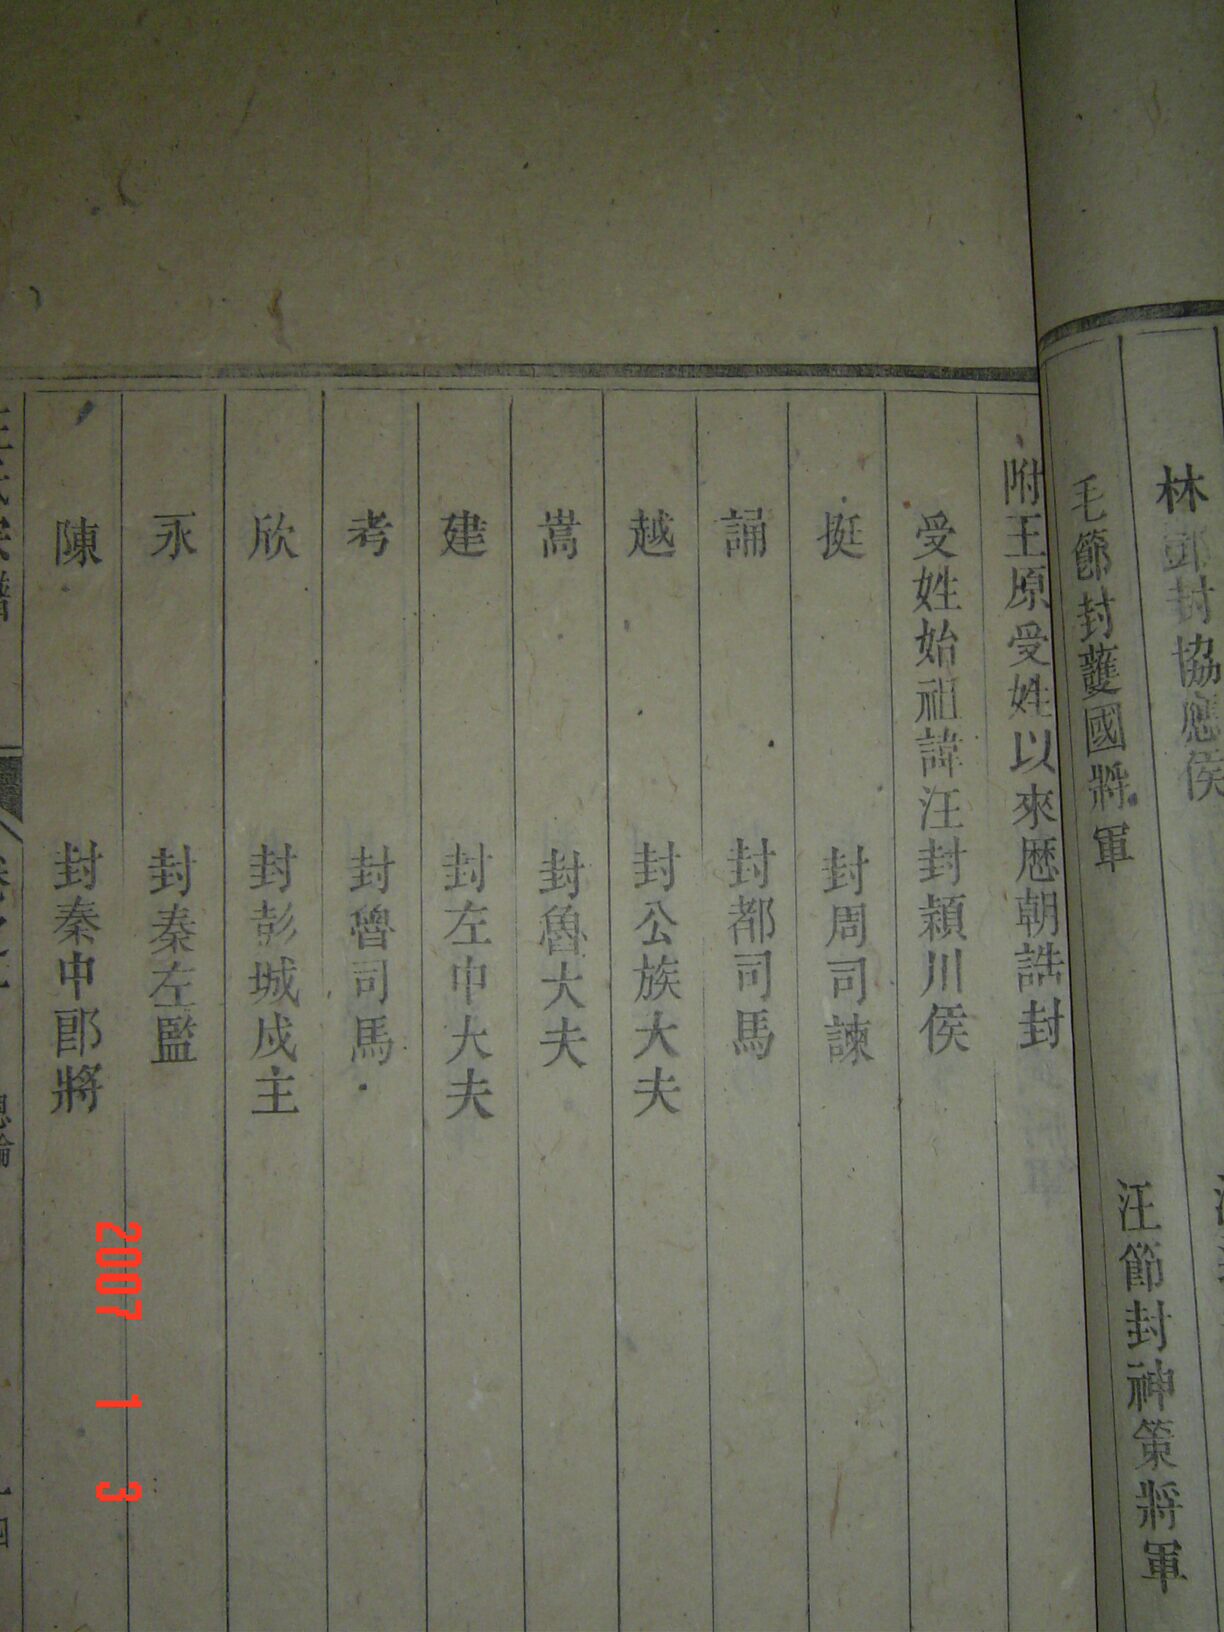 林 鄧封協應侯
毛節封護國將軍
汪節封神策將軍
附王原受姓以來歷朝誥封
受姓始祖諱汪封潁川侯
挺 封周司諫
誦 封都司馬
越 封公族大夫
嵩 封魯大夫
建 封左中大夫
考 封魯司馬
欣 封彭城戍主
永 封秦左監
陳 封秦中郎將
2007 1 3